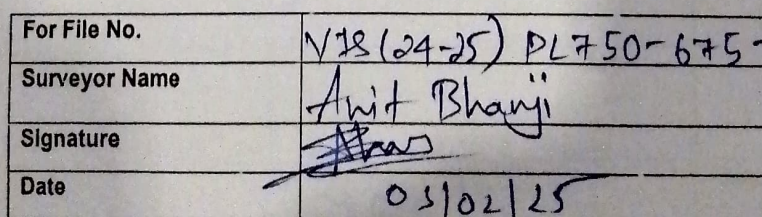 For File No. VIS (24-25) PL750-675-
Surveyor Name Anit Bhanji
Signature
Date 03/02/25